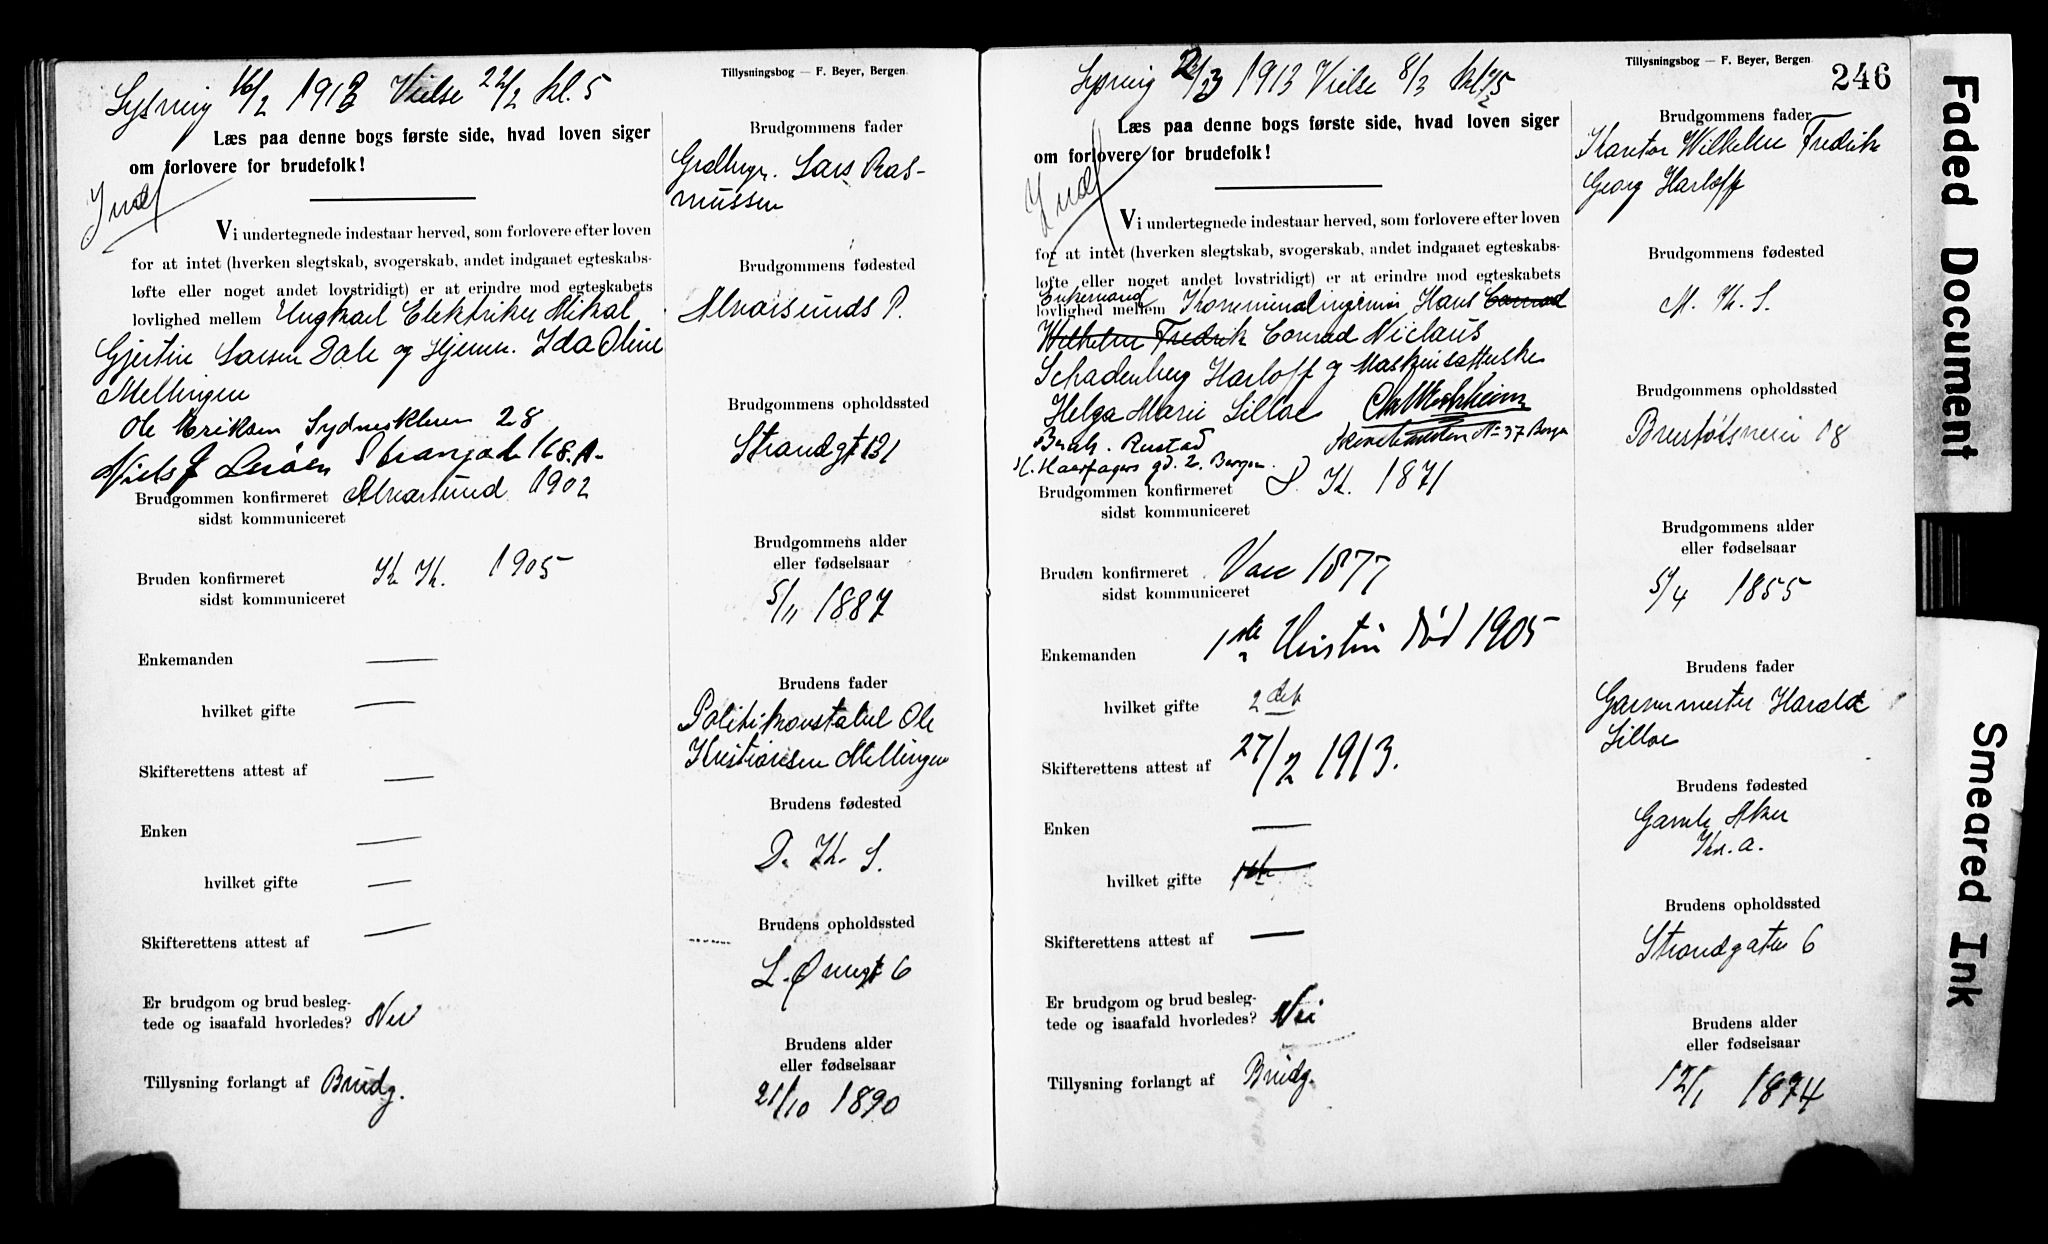 Lysning 16/2 1913 Vielse 22/2 kl. 5
Læs paa denne bogs første side, hvad loven siger
om forlovere for brudefolk!
Indf
Vi undertegnede indestaar herved, som forlovere efter loven
for at intet (hverken slegtskab, svogerskab, andet indgaaet egteskabs-
løfte eller noget andet lovstridigt) er at erindre mod egteskabets
lovlighed mellem Ungkarl Elektriker Mikal
Gjertin Larsen Dale og Hjemv. Ida Oline
Mellingen
Ole Eriksen Sydneskleven 28
Niels J Lerøen Strangad 168.A.
Brudgommen konfirmeret Alvarsund 1902
sidst kommuniceret
Bruden konfirmeret K. K. 1905
sidst kommuniceret
Enkemanden —
hvilket gifte —
Skifterettens attest af —
Enken —
hvilket gifte —
Skifterettens attest af —
Er brudgom og brud besleg-
tede og isaafald hvorledes? Nei
Tillysning forlangt af Brudg.
Tillysningsbog — F. Beyer, Bergen.
Brudgommens fader
Grdbrgr. Lars Ras-
mussen
Brudgommens fødested
Alvarsunds P.
Brudgommens opholdssted
Strandgt 131
Brudgommens alder
eller fødselsaar
5/11 1887
Brudens fader
Politikonstabel Ole
Kristiansen Mellingen
Brudens fødested
D. K. S.
Brudens opholdssted
L. Øvregt 6
Brudens alder
eller fødselsaar
21/10 1890
Lysning 2/3 1913 Vielse 8/3 kl. 5
Læs paa denne bogs første side, hvad loven siger
om forlovere for brudefolk!
Indf
Vi undertegnede indestaar herved, som forlovere efter loven
for at intet (hverken slegtskab, svogerskab, andet indgaaet egteskabs-
løfte eller noget andet lovstridigt) er at erindre mod egteskabets
Enkemand
lovlighed mellem Kommunalingeniør Hans Conrad
Wilhelm Fredrik Conrad Niclaus
Schadenberg Harloff og Maskinsætterske
Helga Marie Lilloe
Rustad No 37 Bergen
H. Haarfagers gd. 2. Bergen.
Brudgommen konfirmeret D. K. 1871
sidst kommuniceret
Bruden konfirmeret Vaae 1877
sidst kommuniceret
Enkemanden 1ste Hustru død 1905
hvilket gifte 2det
Skifterettens attest af 27/2 1913.
Enken —
hvilket gifte 1ste
Skifterettens attest af —
Er brudgom og brud besleg-
tede og isaafald hvorledes? Nei
Tillysning forlangt af Brudg.
Tillysningsbog — F. Beyer, Bergen.
246
Brudgommens fader
Kantor Wilhelm Fredrik
Georg Harloff
Brudgommens fødested
M. K. S.
Brudgommens opholdssted
18
Brudgommens alder
eller fødselsaar
5/4 1855
Brudens fader
Garvermester Harald
Lilloe
Brudens fødested
Gamle Aker
Kr. a.
Brudens opholdssted
Strandgaten 6
Brudens alder
eller fødselsaar
12/1 1874
Faded Document
Smeared Ink